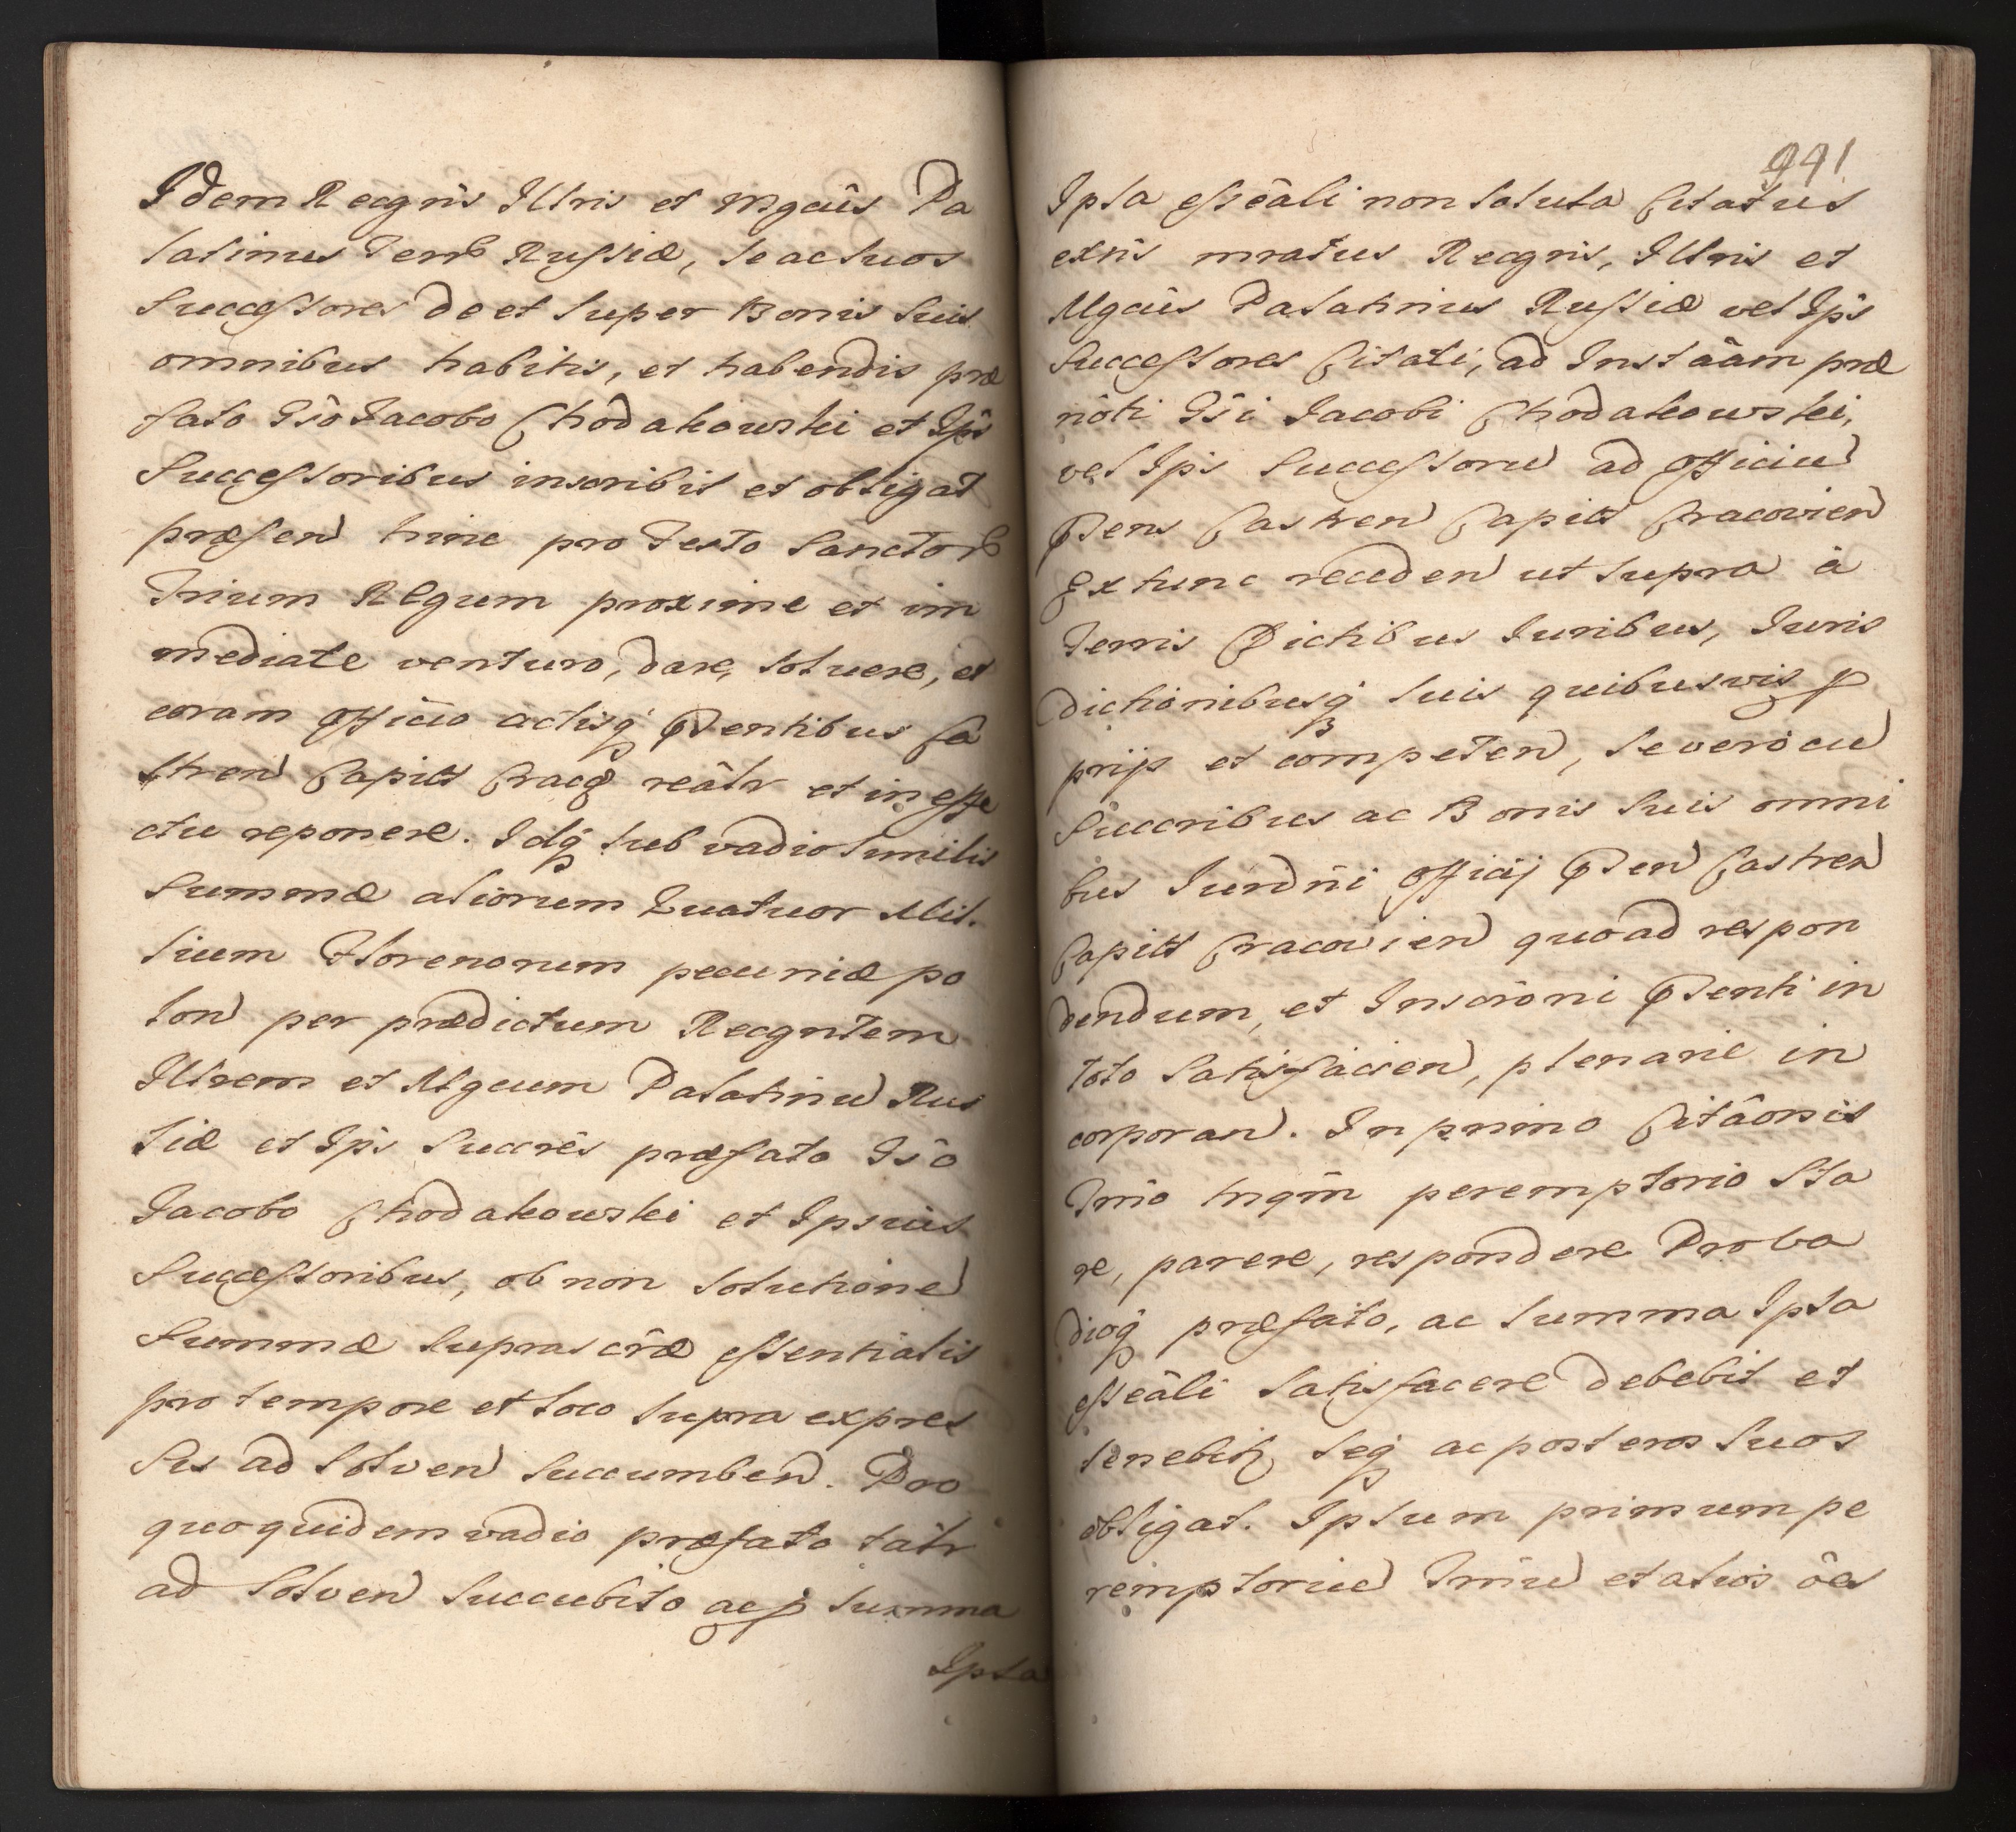 Idem Recgñs Illris et Mgcus Pa
latinus Terrar Russiæ, se ac suos
Successores de et super Bonis suis
omnibus habitis, et habendis præ
fato Gso Jacobo Chodakowski et Ips
Successoribus inscribit et obligat
præsen hinc pro Festo Sanctor
Trium Regum proxime et im
mediate venturo, dare, solvere, et
coram officio actisq Psentibus Ca
stren Capitt Crac reâlr et in effe
ctu reponere. Idq sub vadio similis
Summæ aliorum Quatuor Mil.
lium Florenorum pecuniæ po
lon per prædictum Recgntem
Illrem et Mgcum Palatinu Rus
siæ et Ips Succrês præfato Gso
Jacobo Chodakowski et Ipsius
Successoribus, ob non solutione
Summæ suprascræ essentialis
pro tempore et loco supra expres
sis ad solven succumben. Pro
quo quidem vadio præfato talr
ad solven succubito acp summa
Ipsa
991
Ipsa essêali non soluta Citatus
extñs mratus Recgñs, Illris et
Mgcus Palatinus Russiæ vel Ips
Successores Citati, ad Instâam præ
nôti Gsi Jacobi Chodakowski,
vel Ips Successoru ad officiu
Psens Castren Capitt Cracovien
Ex tunc receden ut supra à
Terris Dictibus Juribus, Juris
dictionibusq suis quibusvis p
prijs et competen, se vero cu
Succribus ac Bonis suis omni
bus Jurdñi officij Psen Castren
Capitt Cracovien quoad respon
dendum, et Inscrôni Psenti in
toto satisfacien, plenarie in
corporan. In primo Citâonis
Tmño tnqm peremptorio sta
re, parere, respondere Proba
dioq præfato, ac summa Ipsa
essêali satisfacere debebit et
tenebit seq ac posteros suos
obligat. Ipsum primum pe
remptoriu Tmnu et alios ôes